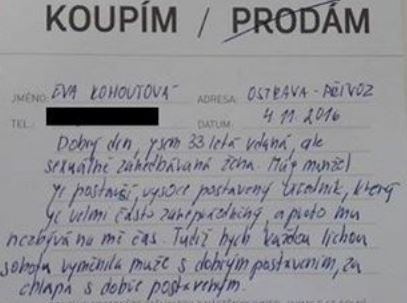 KOUPÍM / PRODÁM
JMÉNO: EVA KOHOUTOVÁ ADRESA: OSTRAVA - PŘÍVOZ
TEL.: DATUM: 4.11.2016
Dobrý den, jsem 33 letá vdaná, ale
sexuálně zanedbávaná žena. Můj manžel
je postarší, vysoce postavený úředník, který
je velmi často zaneprázdněný, a proto mu
nezbývá na mě čas. Tudíž bych každou lichou
sobotu vyměnila muže s dobrým postavením, za
chlapa s dobře postaveným.